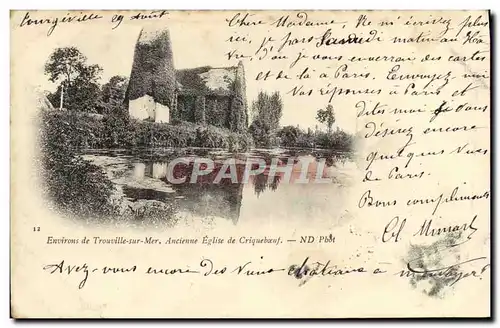 Tourgéville 29 août
Chère Madame, Ne m'écrivez plus
ici, je pars Samedi matin au Havre
d'où je vous enverrai des cartes
et de là à Paris. Envoyez moi
vos réponses à Paris, et
dites moi si vous
désirez encore
quelques vues
de Paris.
Bons compliments
Ch Minart
CPARAMA
12
Environs de Trouville-sur-Mer. Ancienne Église de Criquebœuf. — ND Phot
Avez-vous encore des Vues à m'envoyer?